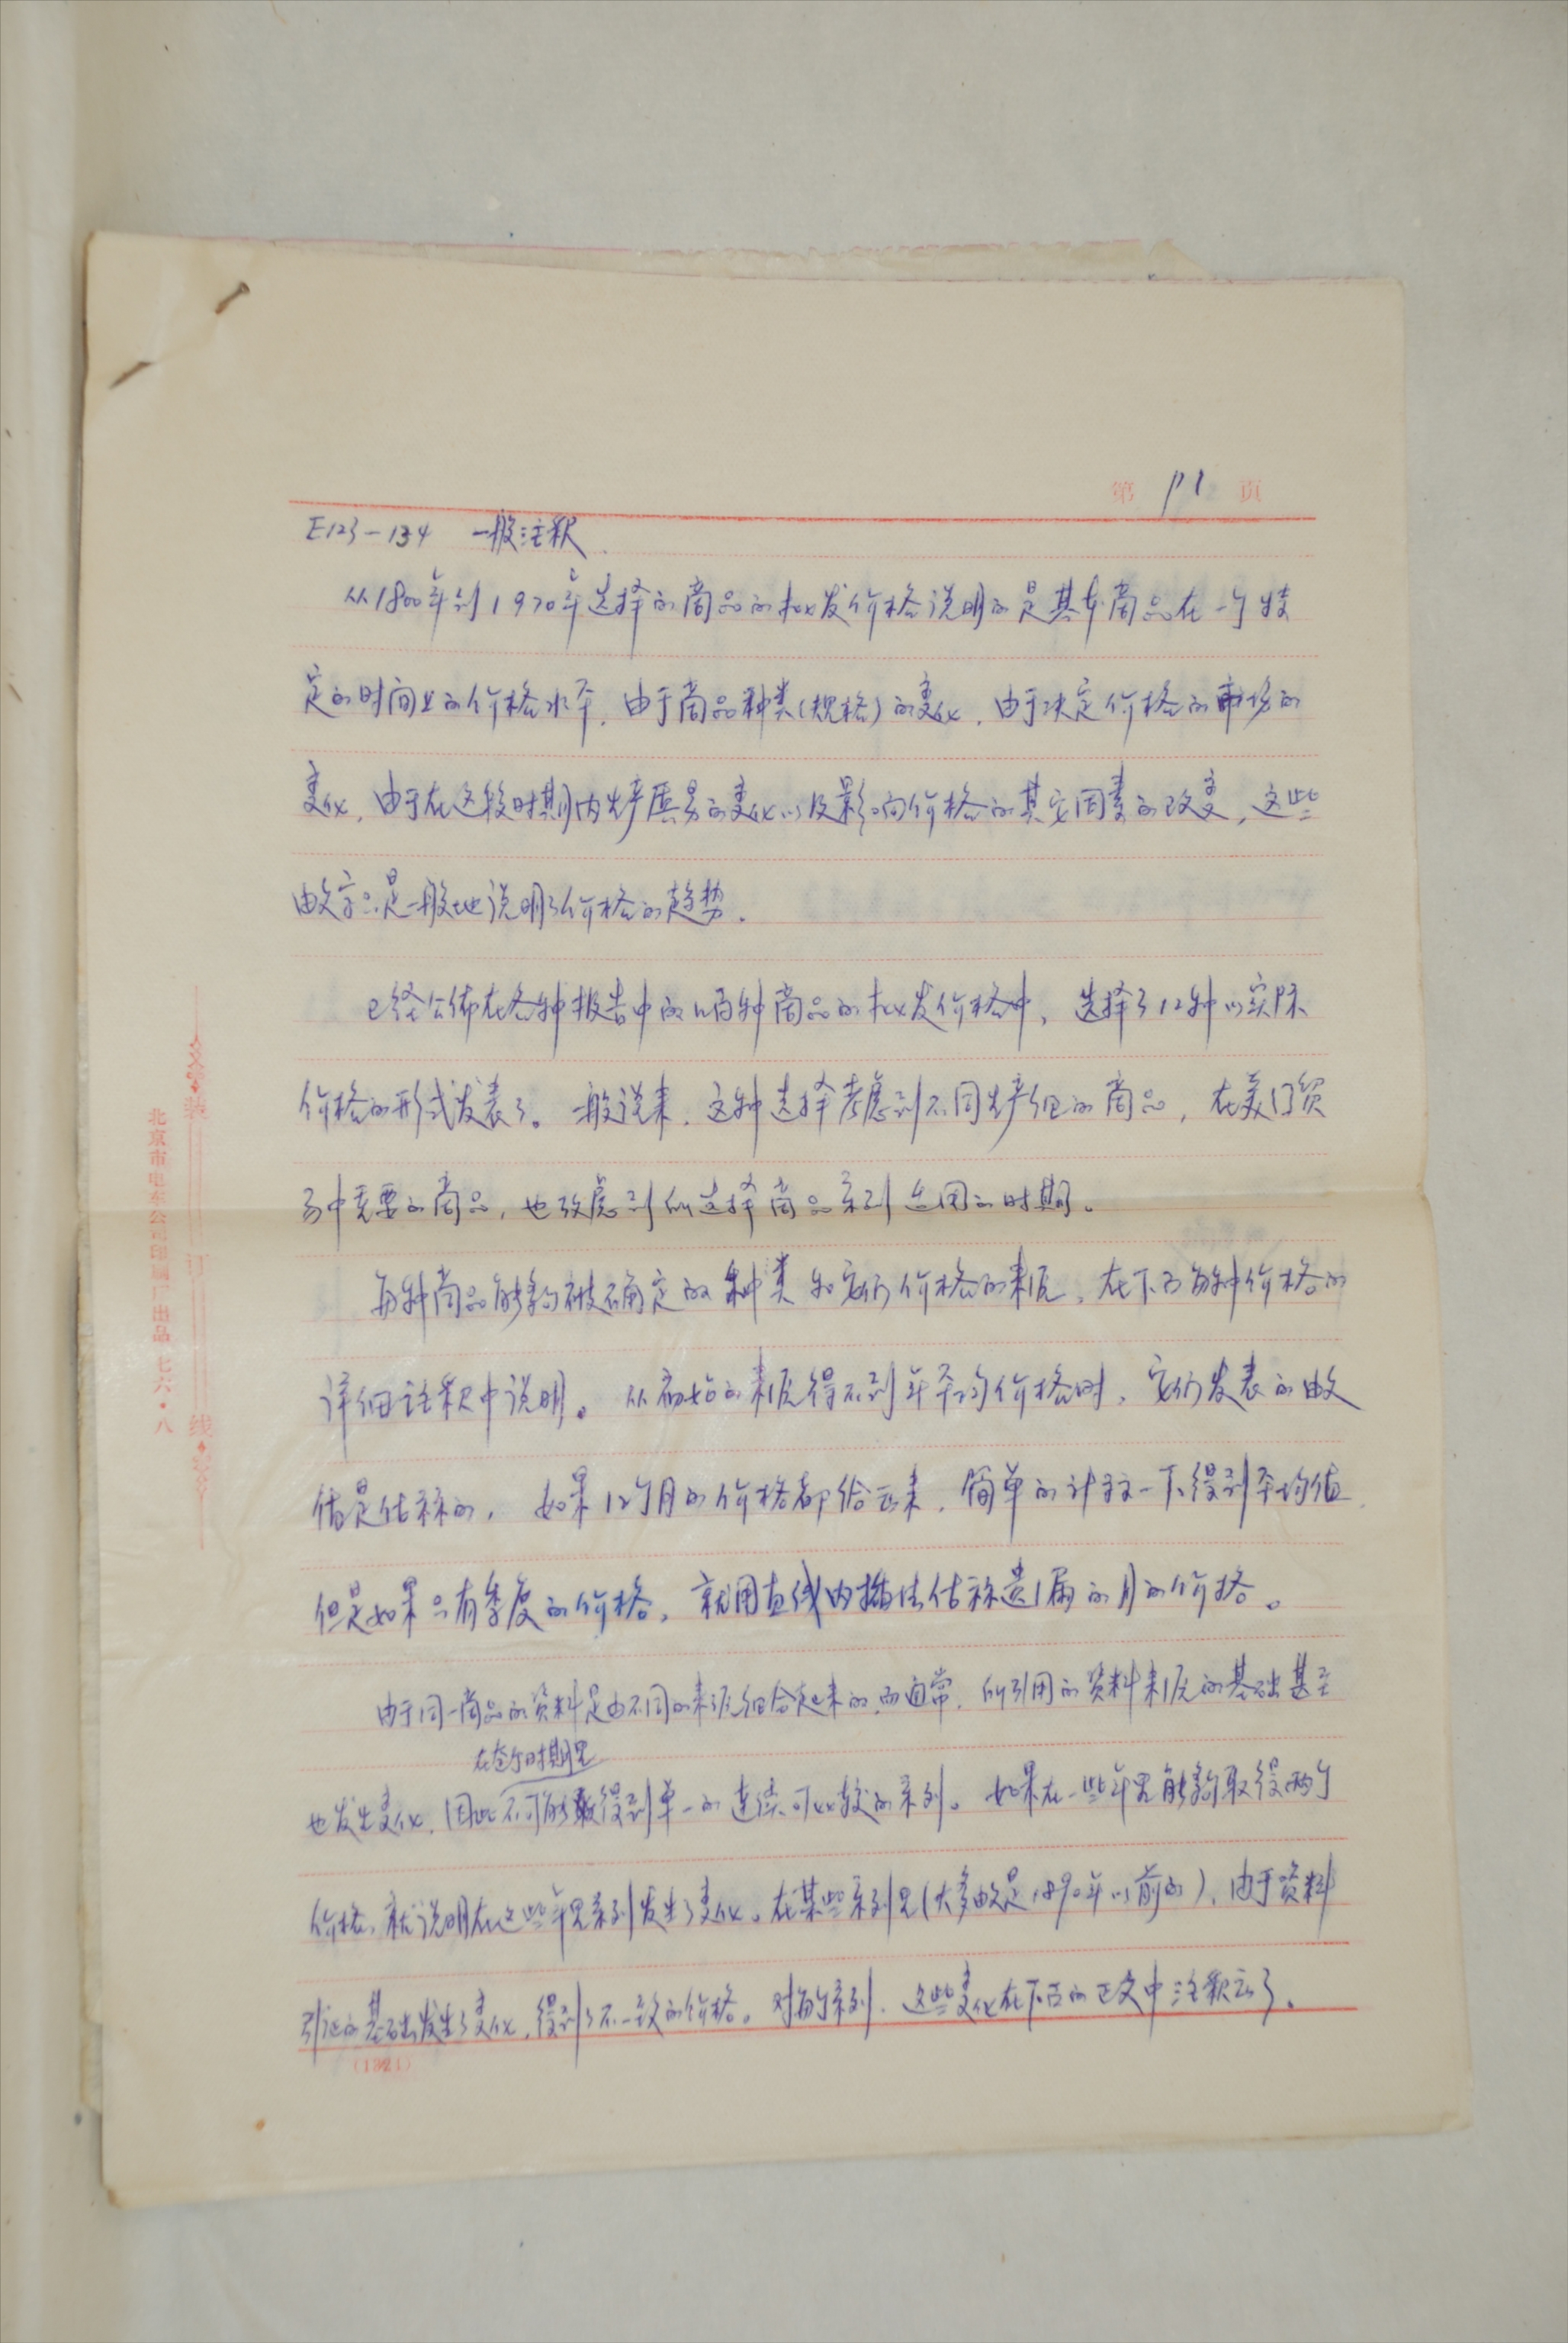 第 P1 页
E123-134 一般注釈
从1800年到1970年选择的商品的批发价格说明的是基本商品在一个特
定的时间上的价格水平,由于商品种类(规格)的变化,由于决定价格的市场的
变化,由于在这段时期内生产贸易的变化以及影响价格的其它因素的改变,这些
数字只是一般地说明了价格的趋势.
已经公佈在各种报告中的几百种商品的批发价格中,选择了12种以实际
价格的形式发表了。一般说来,这种选择考虑到不同生产组的商品,在美国贸
易中重要的商品,也考虑到所选择商品系列适用的时期。
每种商品能够被确定的种类和它们价格的来源,在下面每种价格的
详细註釈中说明。从原始的来源得不到年平均价格时,它们发表的数
值是估计的,如果12个月的价格都给出来,简单的计算一下得到平均值.
但是如果只有季度的价格,就用直线内插法估计遗漏的月的价格。
由于同一商品的资料是由不同的来源组合起来的,而通常,所引用的资料来源的基础甚至
在整个时期里
也发生变化,因此不可能得到单一的连续可比较的系列。如果在一些年里能够取得两个
价格,就说明在这些年里系列发生了变化。在某些系列里(大多数是1890年以前的),由于资料
引证的基础发生了变化,得到了不一致的价格。对每个系列,这些变化在下面的正文中注釈出了.
(1324)
装 订 线
北京市电车公司印刷厂出品 七六·八